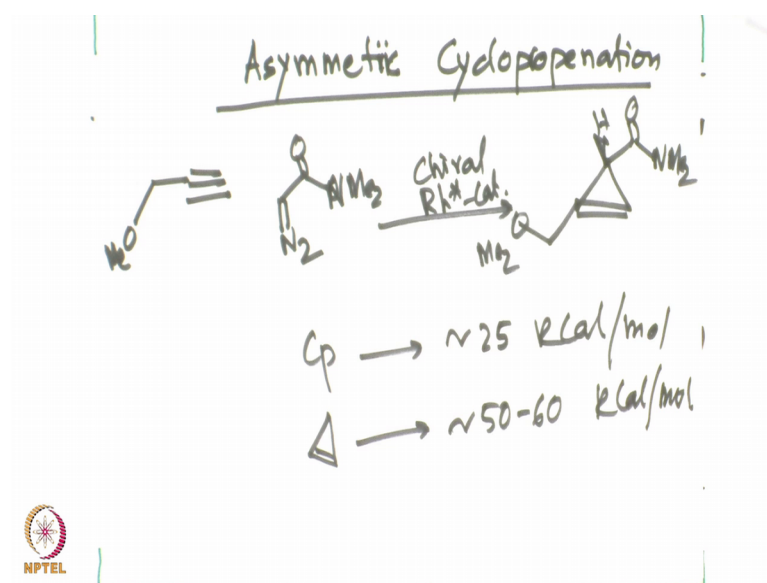 Asymmetic Cyclopropenation
O
NMe2
N2
MeO
Chiral
Rh*-Cat.
H
O
NMe2
O
Me2
Cp → ~25 kcal/mol
→ ~50-60 kcal/mol
NPTEL